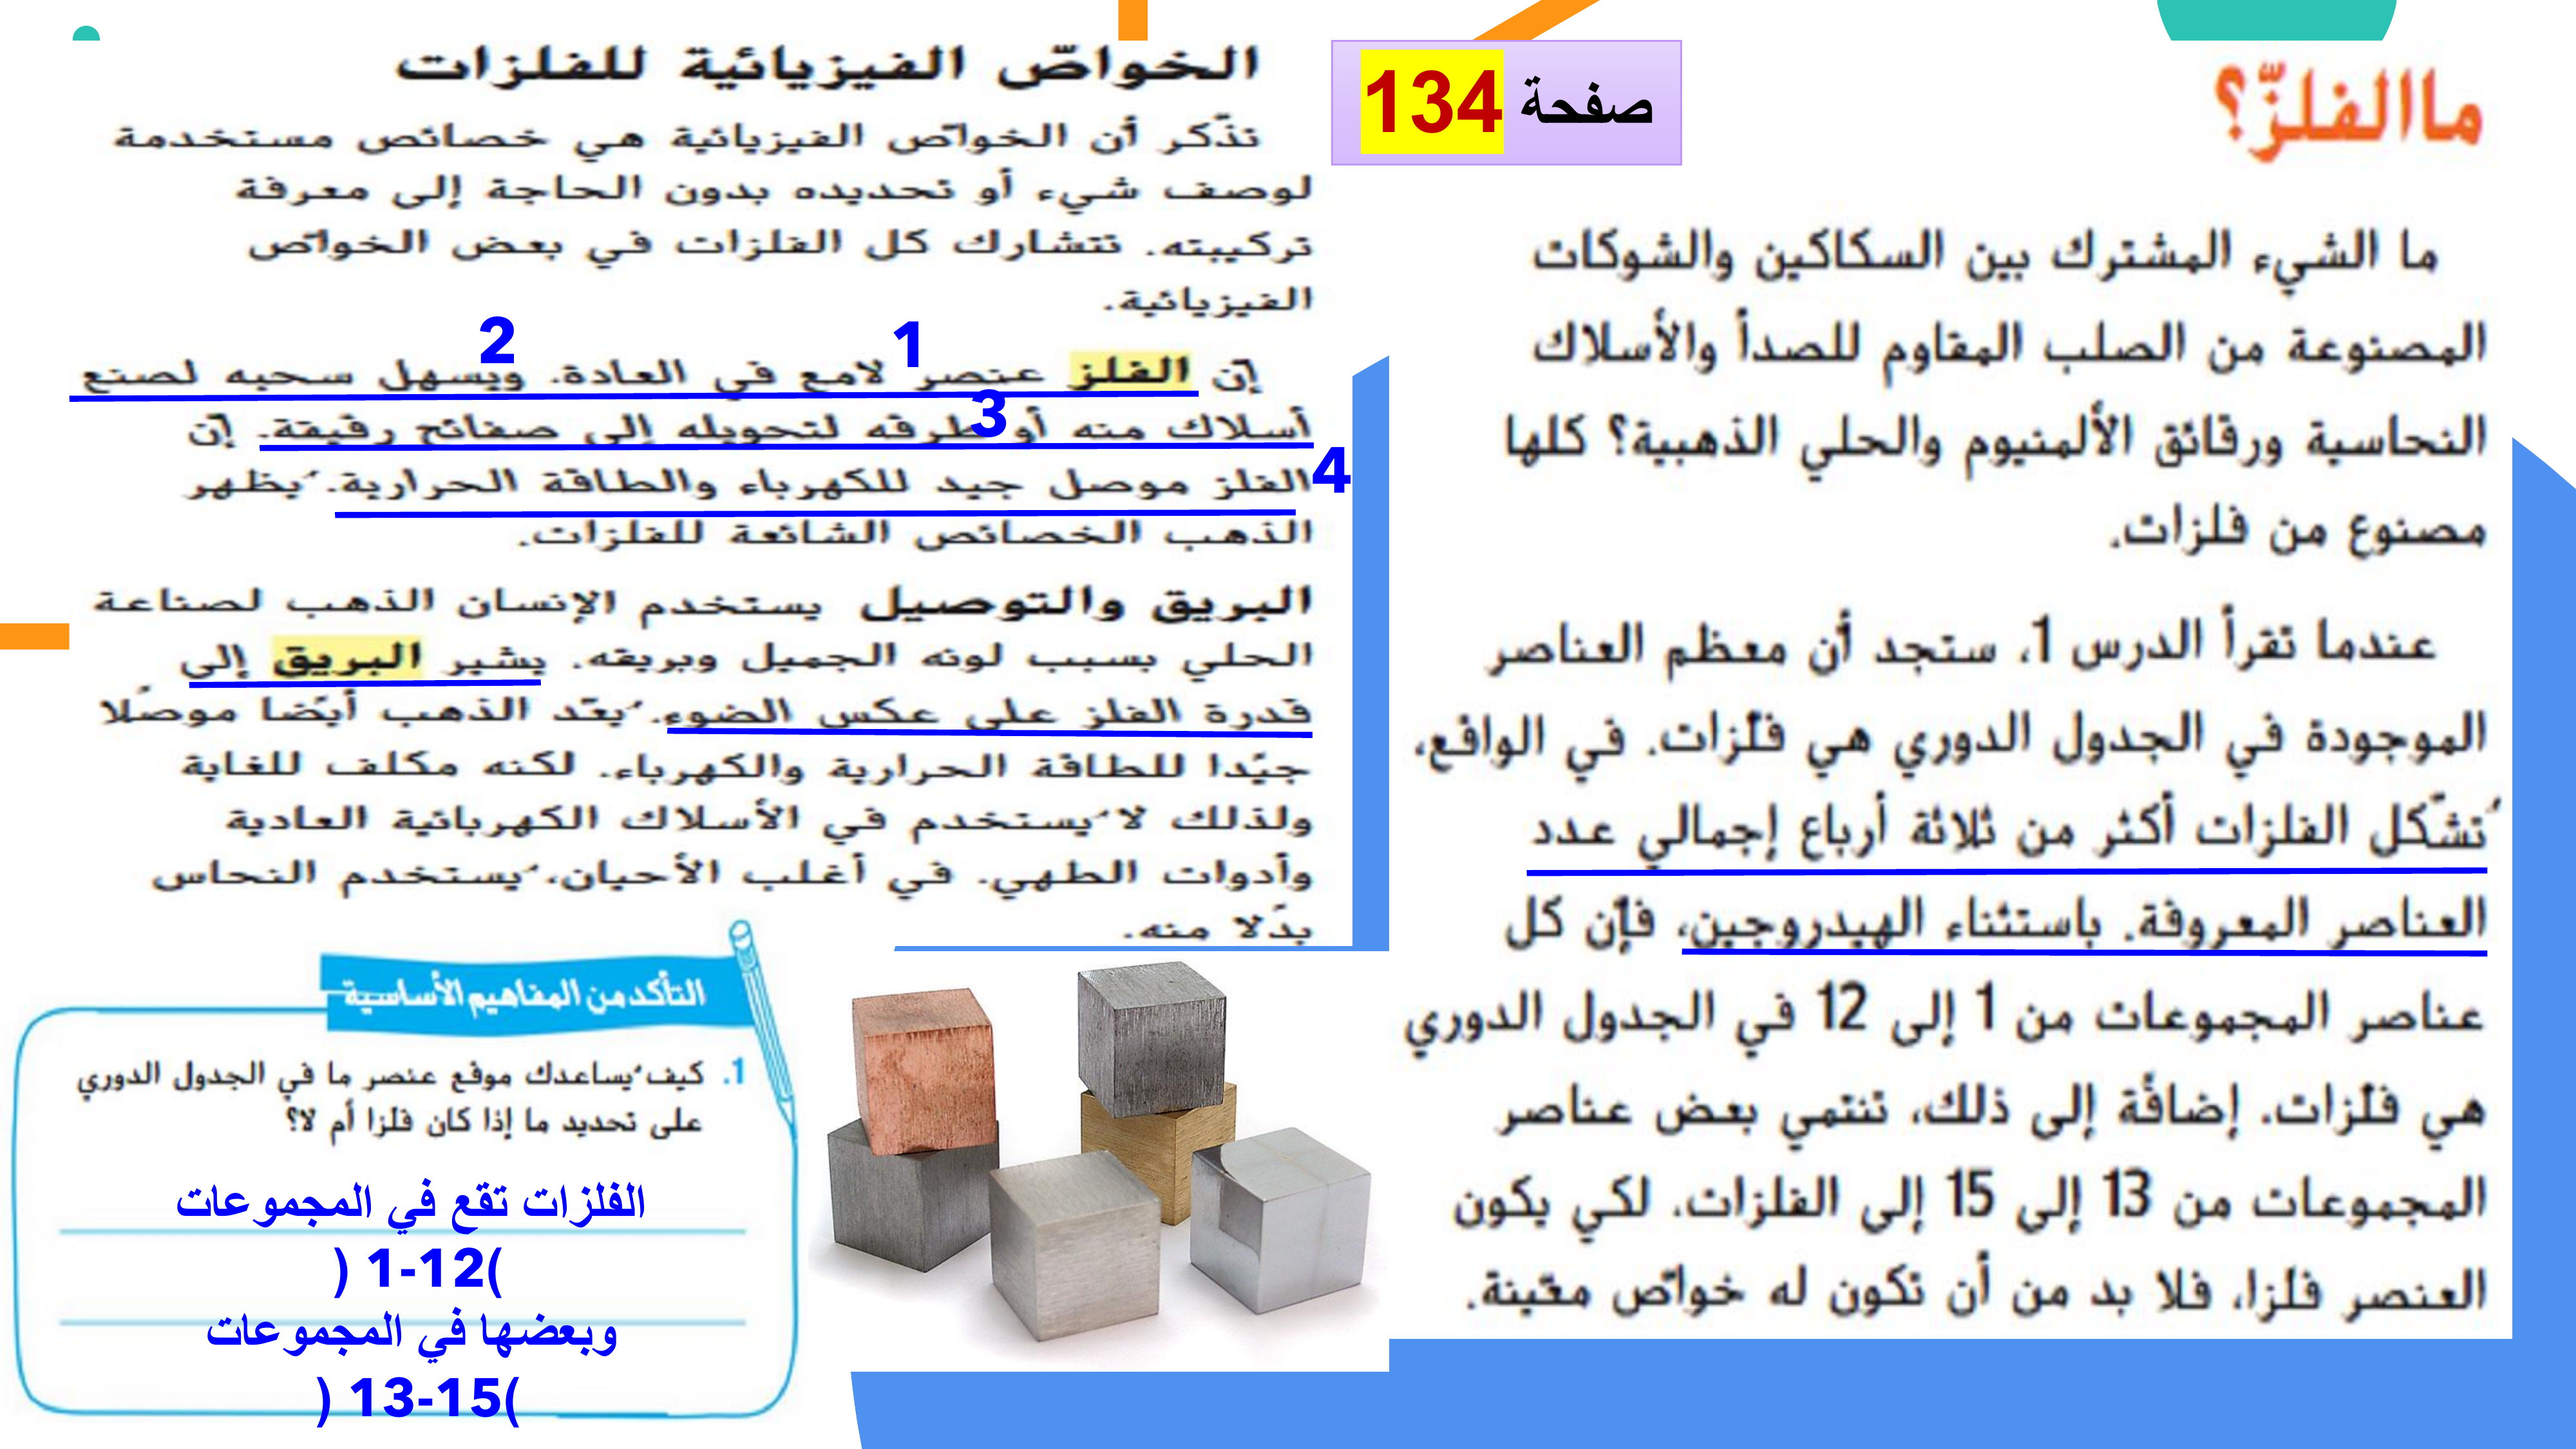 صفحة 134
ما الفلزّ؟
ما الشيء المشترك بين السكاكين والشوكات
المصنوعة من الصلب المقاوم للصدأ والأسلاك
النحاسية ورقائق الألمنيوم والحلي الذهبية؟ كلها
مصنوع من فلزات.
عندما تقرأ الدرس 1، ستجد أن معظم العناصر
الموجودة في الجدول الدوري هي فلزّات. في الواقع،
تُشكّل الفلزات أكثر من ثلاثة أرباع إجمالي عدد
العناصر المعروفة. باستثناء الهيدروجين، فإن كل
عناصر المجموعات من 1 إلى 12 في الجدول الدوري
هي فلزّات. إضافة إلى ذلك، تنتمي بعض عناصر
المجموعات من 13 إلى 15 إلى الفلزات. لكي يكون
العنصر فلزًا، فلا بد من أن تكون له خواصّ معيّنة.
الخواصّ الفيزيائية للفلزات
تذّكر أن الخواصّ الفيزيائية هي خصائص مستخدمة
لوصف شيء أو تحديده بدون الحاجة إلى معرفة
تركيبته. تتشارك كل الفلزات في بعض الخواصّ
الفيزيائية.
1
2
إن الفلز عنصر لامع في العادة. ويسهل سحبه لصنع
3
أسلاك منه أو طرقه لتحويله إلى صفائح رقيقة. إن
4
الفلز موصل جيد للكهرباء والطاقة الحرارية. يُظهر
الذهب الخصائص الشائعة للفلزات.
البريق والتوصيل يستخدم الإنسان الذهب لصناعة
الحلي بسبب لونه الجميل وبريقه. يشير البريق إلى
قدرة الفلز على عكس الضوء. يُعدّ الذهب أيضًا موصلًا
جيّدا للطاقة الحرارية والكهرباء. لكنه مكلف للغاية
ولذلك لا يُستخدم في الأسلاك الكهربائية العادية
وأدوات الطهي. في أغلب الأحيان، يُستخدم النحاس
بدلًا منه.
التأكد من المفاهيم الأساسية
1. كيف يُساعدك موقع عنصر ما في الجدول الدوري
على تحديد ما إذا كان فلزا أم لا؟
الفلزات تقع في المجموعات
) 1-12(
وبعضها في المجموعات
) 13-15(